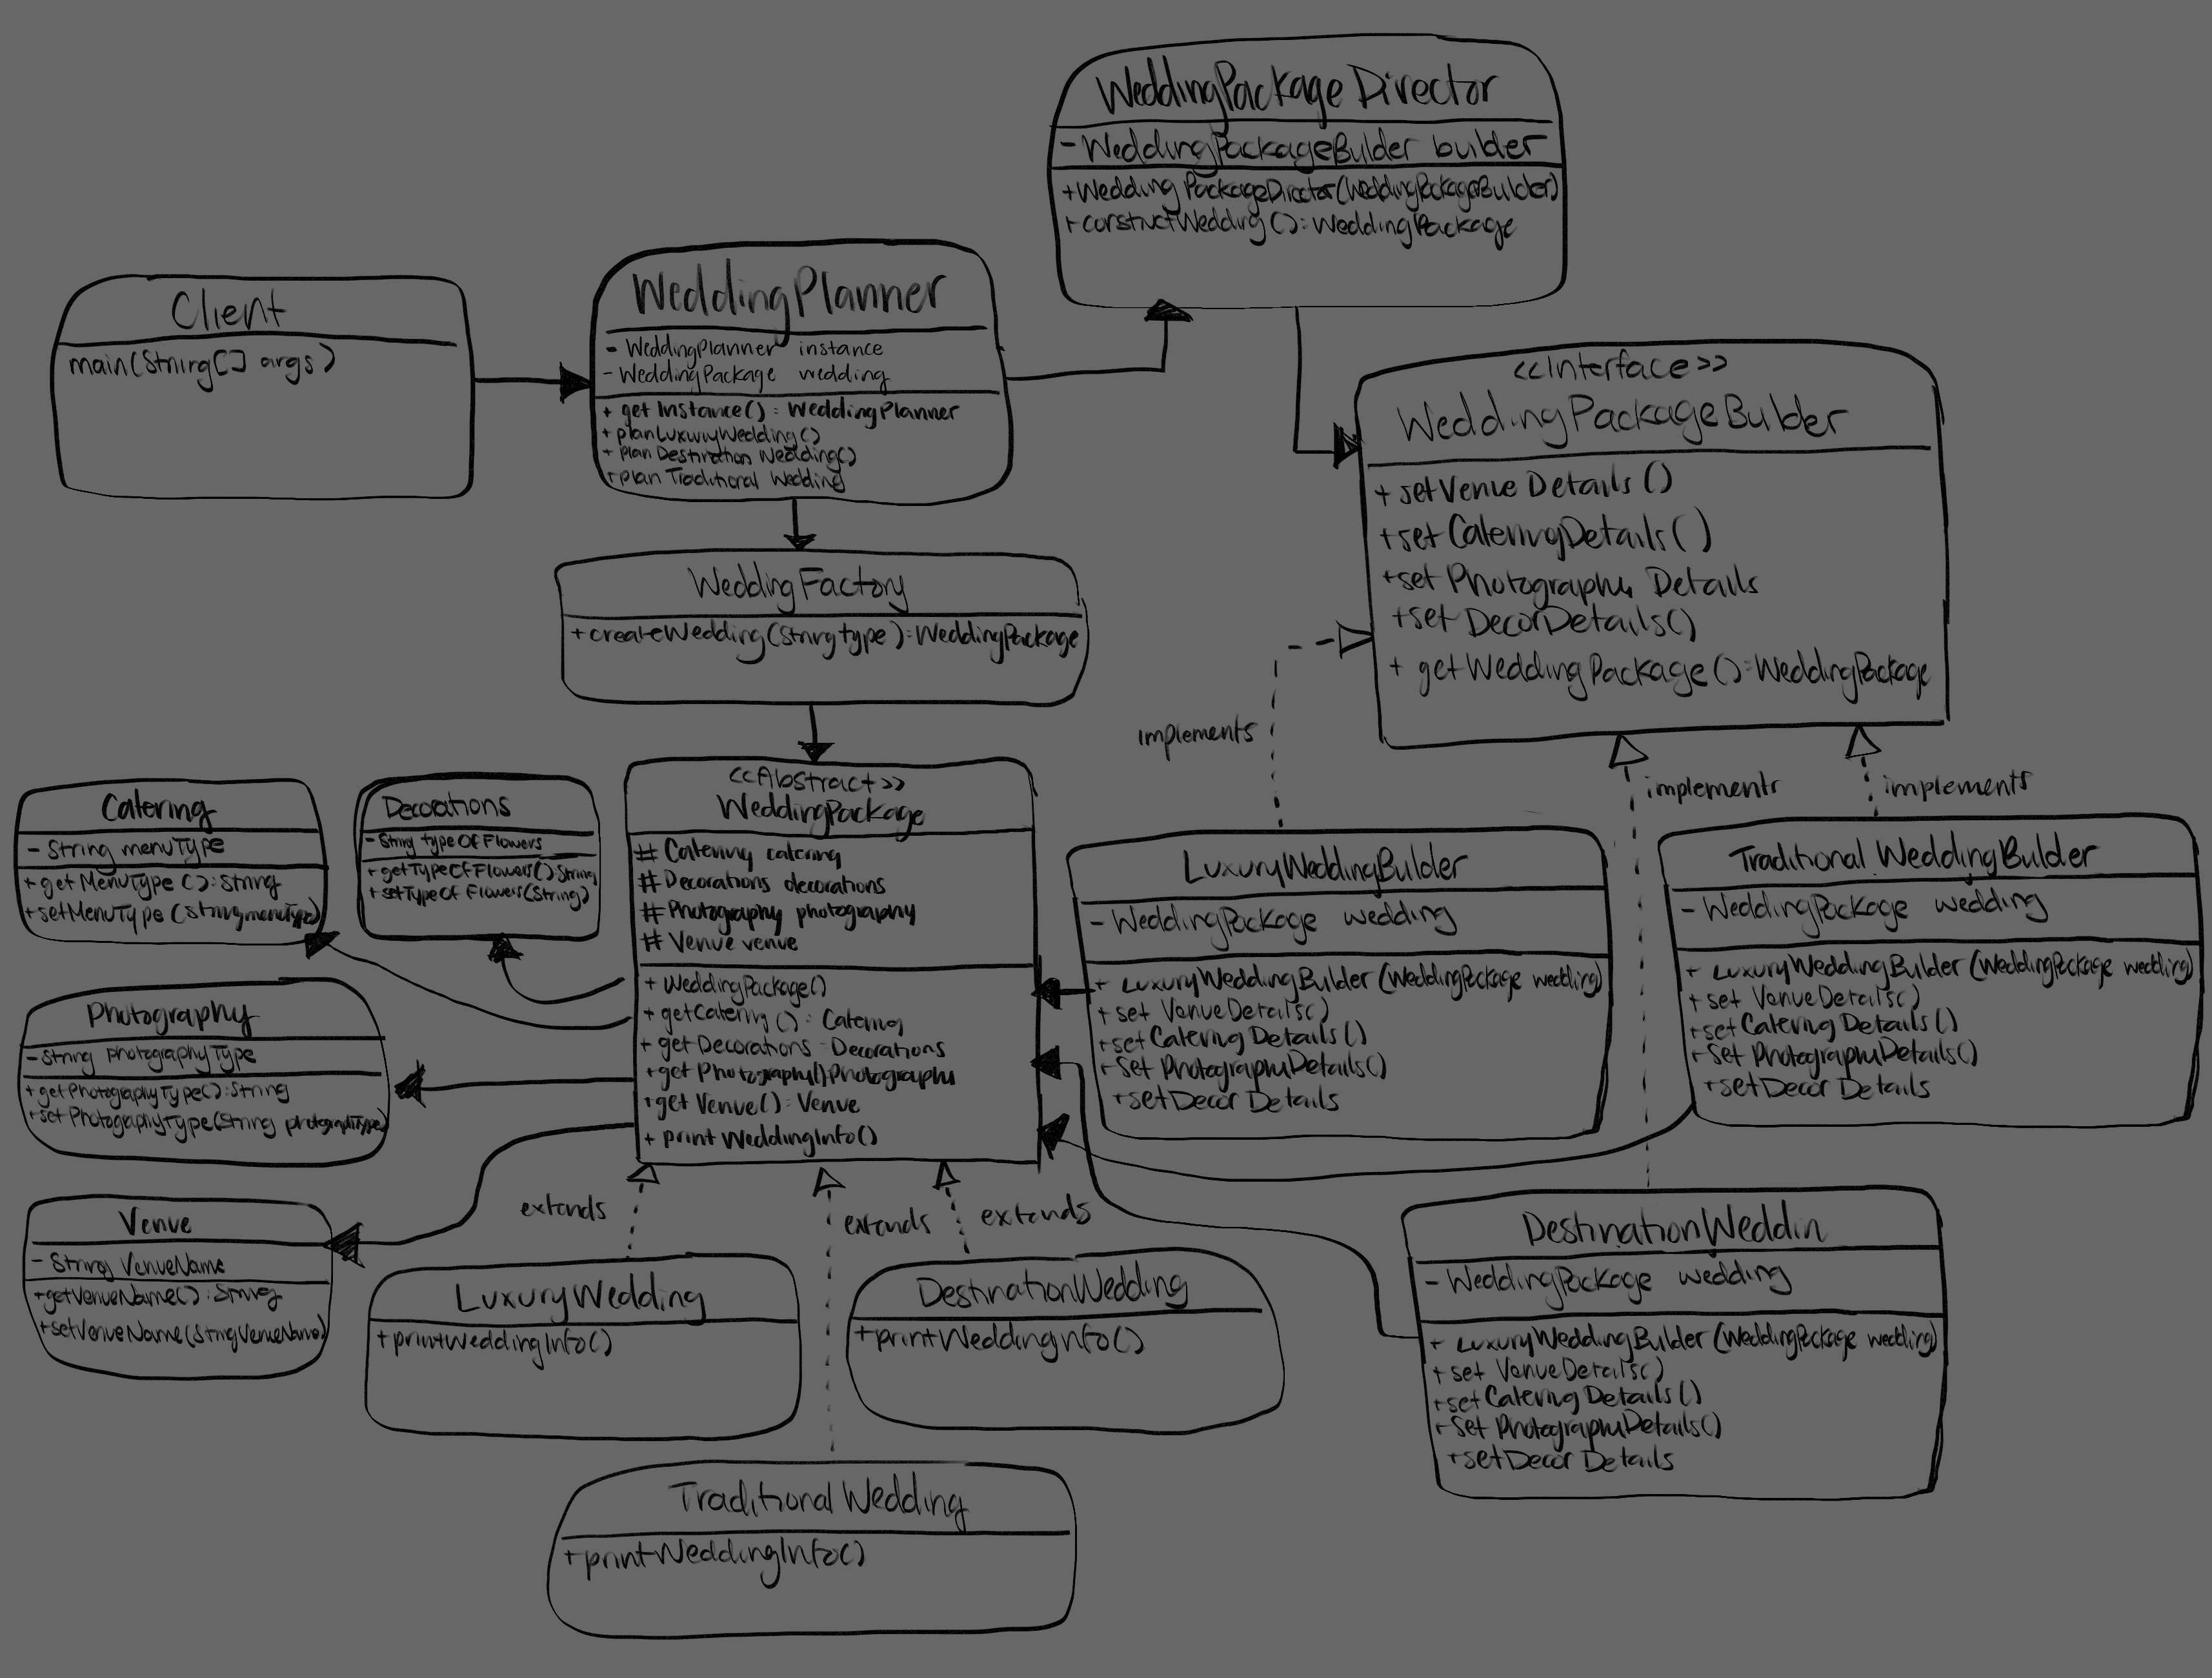 WeddingPackage Director
- WeddingPackageBuilder builder
+Wedding PackageDirector(WeddingPackageBuilder)
+ constuctWedding():WeddingPackage
Client
main(String[] args)
WeddingPlanner
- WeddingPlanner instance
- WeddingPackage wedding
+ getInstance(): WeddingPlanner
+ planLuxuryWedding()
+ plan Destination Wedding()
+plan Traditional Wedding
<<Interface>>
WeddingPackageBuilder
+ setVenue Details()
+set CateringDetails()
+set Photography Details
+set DecorDetails()
+ getWeddingPackage():WeddingPackage
WeddingFactory
+createWedding(String type):WeddingPackage
implements
implements
implements
Catering
- String menuType
+ getMenuType():String
+setMenuType(String menuType)
Decorations
- String typeOfFlowers
+ getTypeOfFlowers():String
+ setTypeOfFlowers(String)
<<Abstract>>
WeddingPackage
# Catering catering
# Decorations decorations
# Photography photography
# Venue venue
+ WeddingPackage()
+ getCatering(): Catering
+ getDecorations -Decorations
+get Photography()Photography
+get Venue(): Venue
+ print WeddingInfo()
LuxuryWeddingBuilder
- WeddingPackage wedding
+ LuxuryWeddingBuilder(WeddingPackage wedding)
+set VenueDetails()
+set Catering Details()
+set PhotographyDetails()
+setDecor Details
Traditional WeddingBuilder
- WeddingPackage wedding
+ LuxuryWeddingBuilder(WeddingPackage wedding)
+set VenueDetails()
+set Catering Details()
+set PhotographyDetails()
+setDecor Details
Photography
- String photographyType
+getPhotographyType():String
+set PhotographyType(String photographyType)
Venue
- String VenueName
+getVenueName():String
+setVenueName(String VenueName)
extends
extends
extends
LuxuryWedding
+printWeddingInfo()
DestinationWedding
+printWeddingInfo()
DestinationWeddin
- WeddingPackage wedding
+ LuxuryWeddingBuilder(WeddingPackage wedding)
+set VenueDetails()
+set Catering Details()
+set PhotographyDetails()
+setDecor Details
Traditional Wedding
+printWeddingInfo()